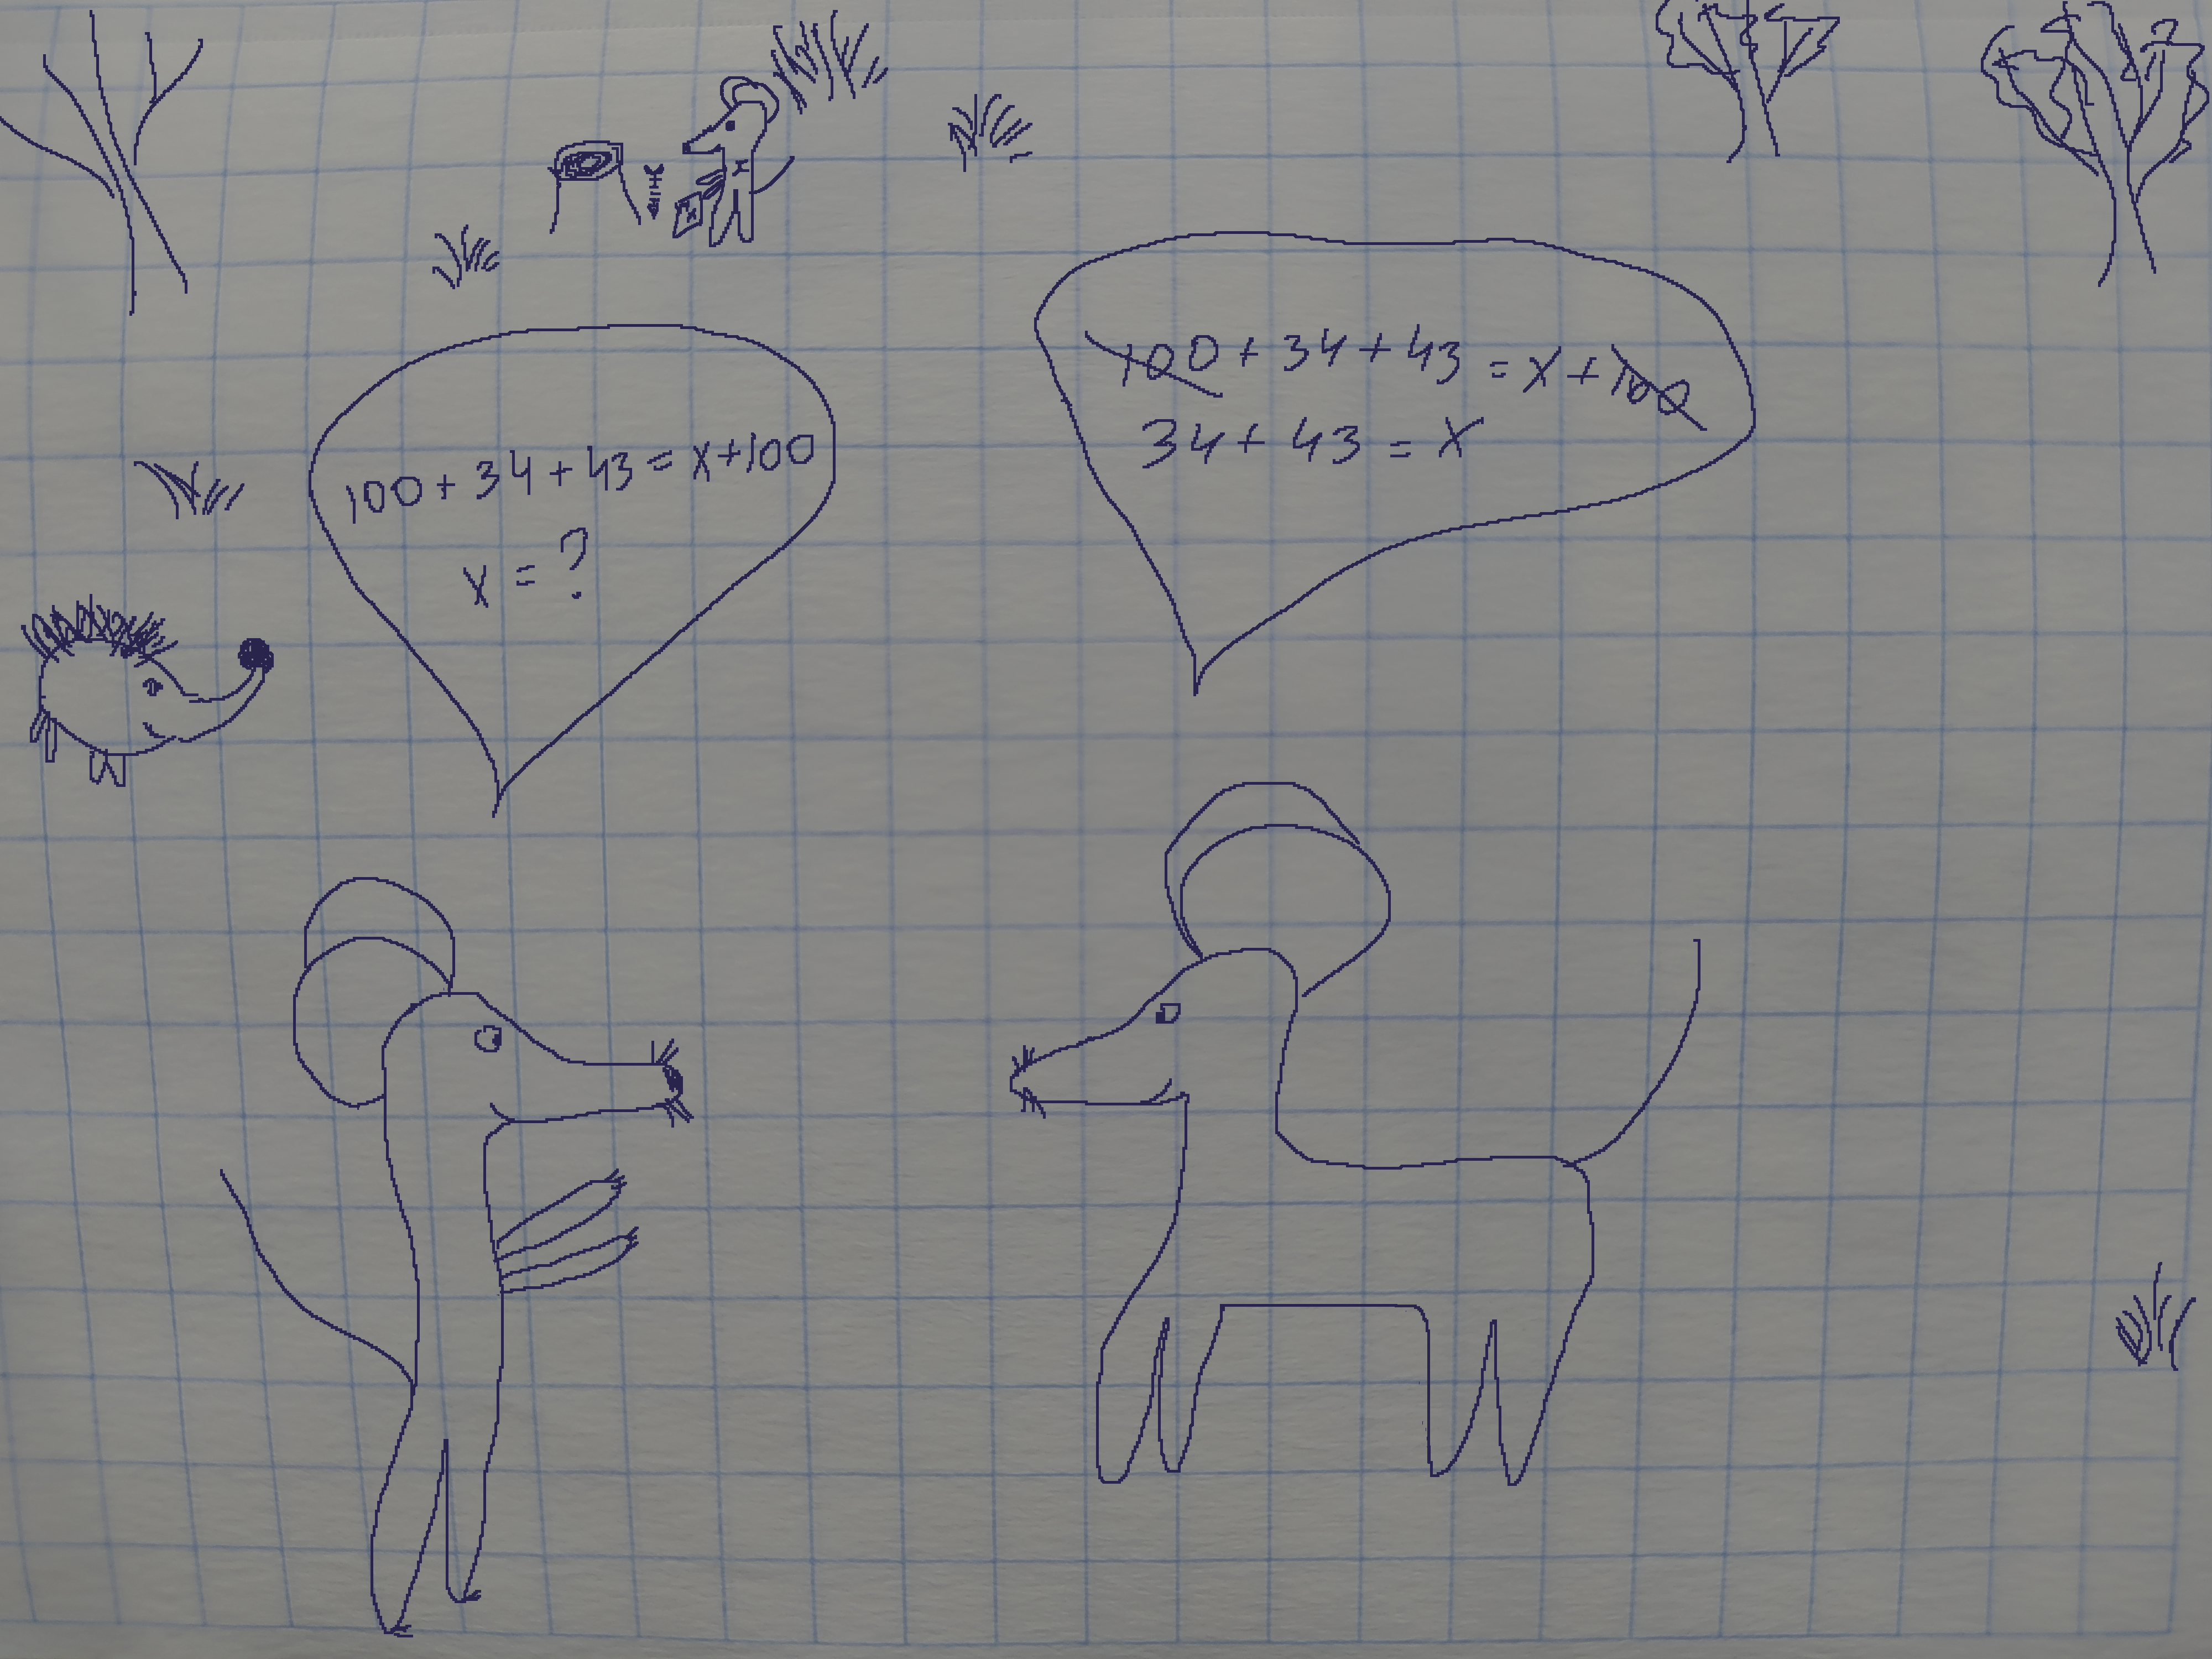 100 + 34 + 43 = x + 100
x = ?
100 + 34 + 43 = x + 100
34 + 43 = x